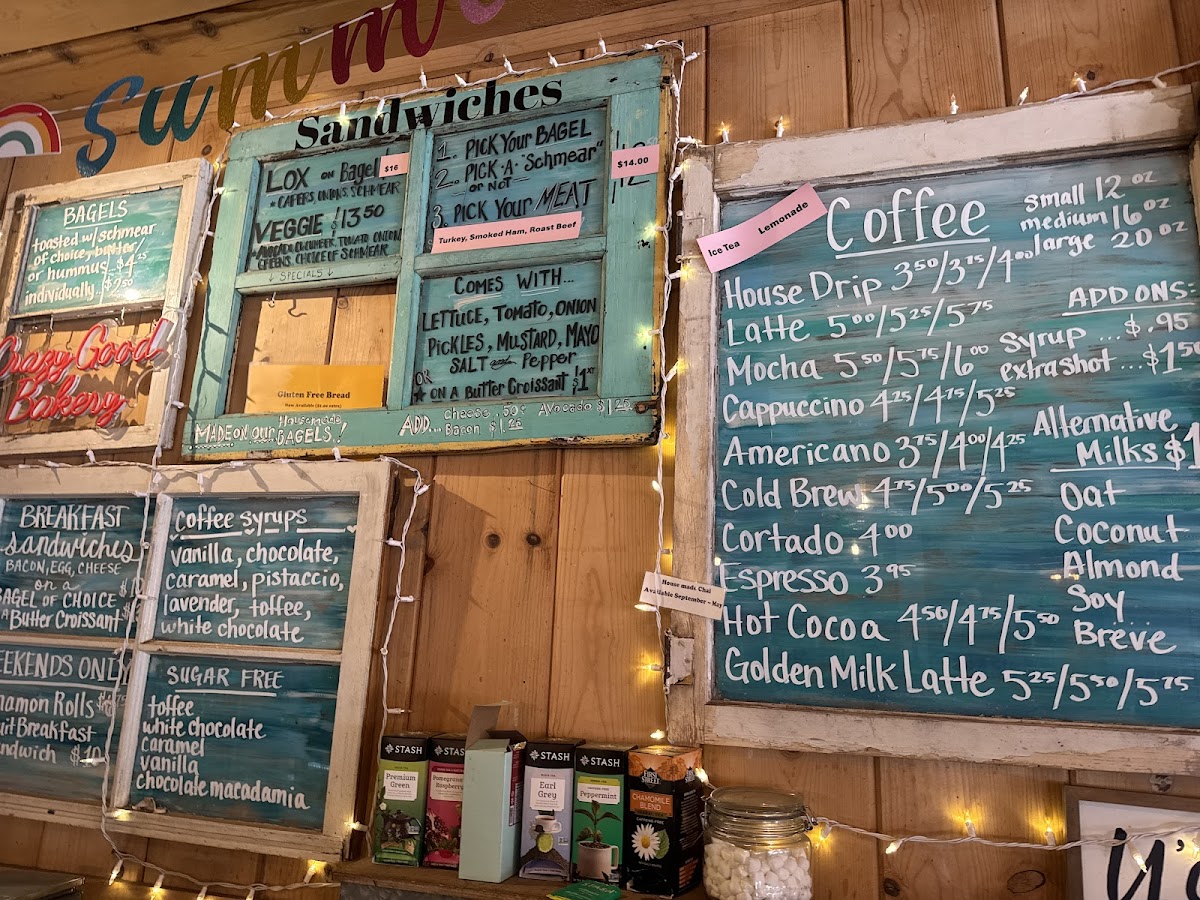 summe
Sandwiches
BAGELS
toasted w/ schmear
of choice, butter/
or hummus $4.25
individually...
Crazy Good
Bakery
LOX on Bagel $16
CAPERS, ONIONS, SCHMEAR
VEGGIE $13.50
AVOCADO, CUCUMBER, TOMATO, ONION
CAPERS, CHOICE of SCHMEAR
↓ SPECIALS ↓
Gluten Free Bread
1. PICK YOUR BAGEL
2. PICK·A·"Schmear"
or NOT
3. PICK YOUR MEAT
$14.00
Turkey, Smoked Ham, Roast Beef
COMES WITH...
LETTUCE, TOMATO, ONION
PICKLES, MUSTARD, MAYO
SALT and PEPPER
OR
★ ON A BUTTER CROISSANT
MADE ON OUR Housemade BAGELS!
ADD... Cheese .50¢ Avocado $1.25
Bacon $1.25
BREAKFAST
Sandwiches
BACON, EGG, CHEESE
on a
BAGEL OF CHOICE
Butter Croissant
Coffee Syrups
vanilla, chocolate,
caramel, pistaccio,
lavender, toffee,
white chocolate
EEKENDS ONLY
namon Rolls
Breakfast
ndwich $10
SUGAR FREE
toffee
white chocolate
caramel
vanilla
chocolate macadamia
Ice Tea Lemonade
Coffee
small 12 oz
medium 16 oz
large 20 oz
House Drip 3.50/3.75/4.00
Latte 5.00/5.25/5.75
Mocha 5.50/5.75/6.00
Cappuccino 4.25/4.75/5.25
Americano 3.75/4.00/4.25
Cold Brew 4.75/5.00/5.25
Cortado 4.00
Espresso 3.95
Hot Cocoa 4.50/4.75/5.50
Golden Milk Latte 5.25/5.50/5.75
ADD ONS:
Syrup ... $.95
extra shot ... $1.50
Alternative
Milks $1
Oat
Coconut
Almond
Soy
Breve
House made Chai
Available September - May
STASH
Premium
Green
STASH
Pomegranate
Raspberry
STASH
Earl
Grey
STASH
Peppermint
CHAMOMILE
BLEND
y'